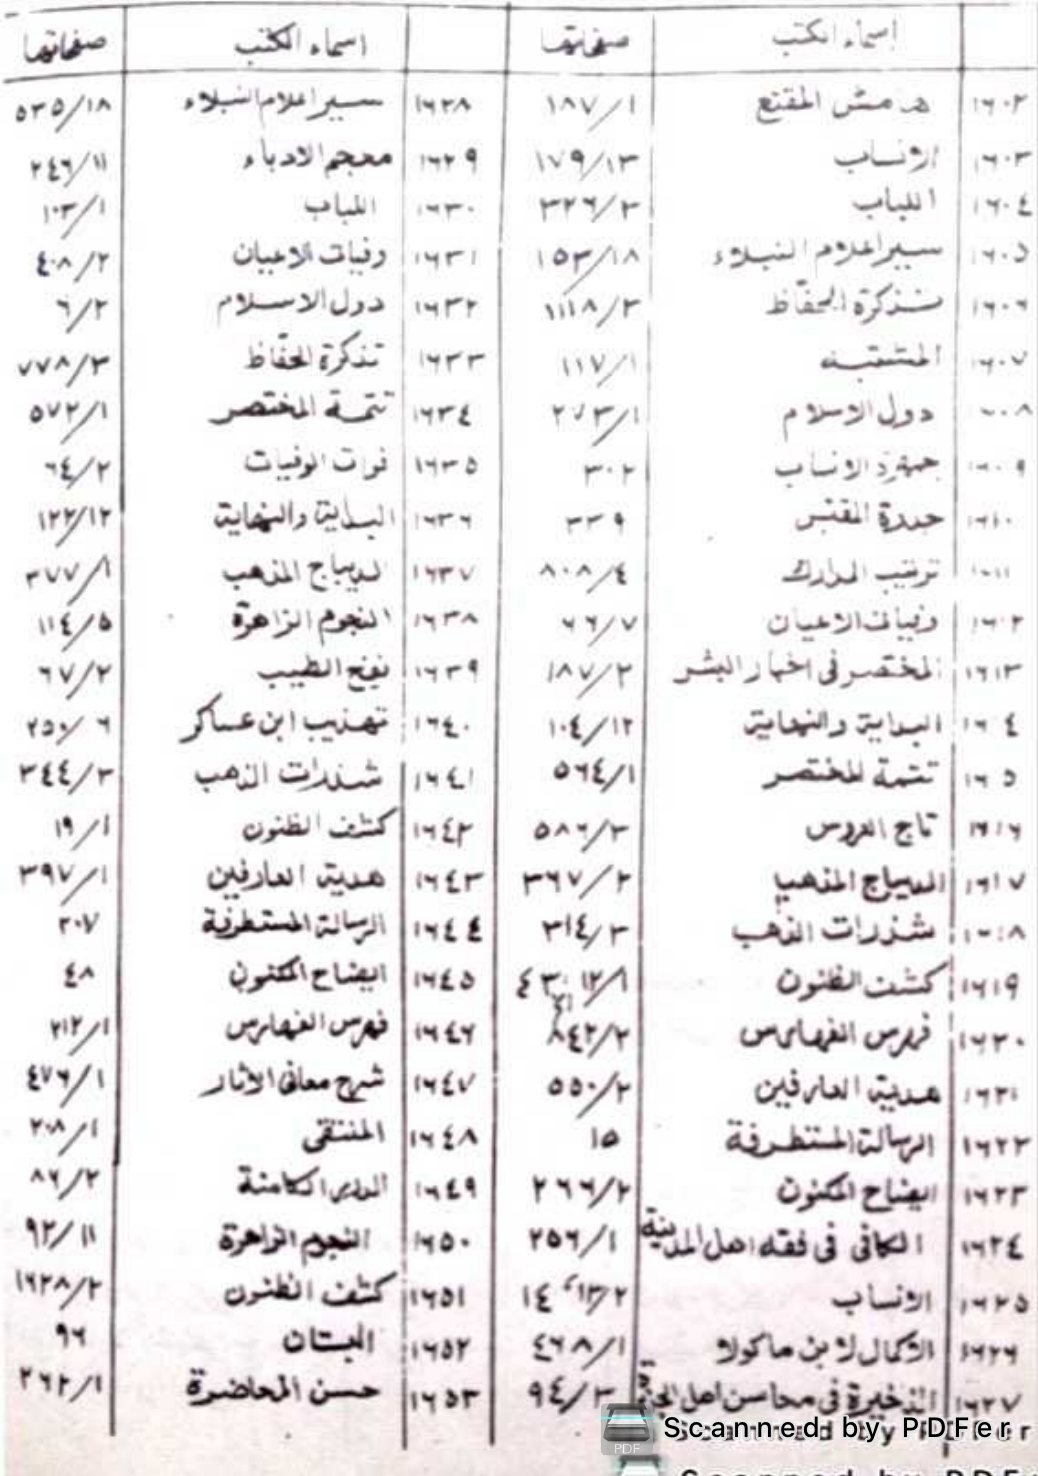 اسماء الكتب صفحاتها
١٦٠٢ هامش المقتع ١٨٧/١
١٦٠٣ الانساب ١٧٩/١٣
١٦٠٤ اللباب ٣٢٦/٣
١٦٠٥ سير اعلام النبلاء ١٥٣/١٨
١٦٠٦ تذكرة الحفّاظ ١١١٨/٣
١٦٠٧ المشتبه ١١٧/١
١٦٠٨ دول الاسلام ٢٧٣/١
١٦٠٩ جمهرة الانساب ٣٠٢
١٦١٠ جذوة المقتبس ٣٣٩
١٦١١ ترتيب المدارك ٨٠٨/٤
١٦١٢ وفيات الاعيان ٦٦/٧
١٦١٣ المختصر فى اخبار البشر ١٨٧/٢
١٦١٤ البداية والنهاية ١٠٤/١٢
١٦١٥ تتمة المختصر ٥٦٤/١
١٦١٦ تاج العروس ٥٨٦/٣
١٦١٧ الديباج المذهب ٣٦٧/٢
١٦١٨ شذرات الذهب ٣١٤/٣
١٦١٩ كشف الظنون ١٢/١، ٤٣
١٦٢٠ فهرس الفهارس ٨٤٢/٢
١٦٢١ هدية العارفين ٥٥٠/٢
١٦٢٢ الرسالة المستطرفة ١٥
١٦٢٣ ايضاح المكنون ٢٦٦/٢
١٦٢٤ الكافى فى فقه اهل المدينة ٢٥٦/١
١٦٢٥ الانساب ١٣/٢، ١٤
١٦٢٦ الاكمال لابن ماكولا ٤٦٨/١
١٦٢٧ الذخيرة فى محاسن اهل الجزيرة ٩٤/٣
اسماء الكتب صفحاتها
١٦٢٨ سير اعلام النبلاء ٥٣٥/١٨
١٦٢٩ معجم الادباء ٢٤٦/١١
١٦٣٠ اللباب ١٠٣/١
١٦٣١ وفيات الاعيان ٤٠٨/٢
١٦٣٢ دول الاسلام ٦/٢
١٦٣٣ تذكرة الحفّاظ ٧٧٨/٣
١٦٣٤ تتمة المختصر ٥٧٢/١
١٦٣٥ فوات الوفيات ٦٤/٢
١٦٣٦ البداية والنهاية ١٢٢/١٢
١٦٣٧ الديباج المذهب ٣٧٧/١
١٦٣٨ النجوم الزاهرة ١١٤/٥
١٦٣٩ نفح الطيب ٦٧/٢
١٦٤٠ تهذيب ابن عساكر ٢٥٠/٦
١٦٤١ شذرات الذهب ٣٤٤/٣
١٦٤٢ كشف الظنون ١٩/١
١٦٤٣ هدية العارفين ٣٩٧/١
١٦٤٤ الرسالة المستطرفة ٢٠٧
١٦٤٥ ايضاح المكنون ٤٨
١٦٤٦ فهرس الفهارس ٢١٢/١
١٦٤٧ شرح معانى الاثار ٤٧٦/١
١٦٤٨ المنتقى ٢٠٨/١
١٦٤٩ الدرر الكامنة ٨٦/٢
١٦٥٠ النجوم الزاهرة ٩٢/١١
١٦٥١ كشف الظنون ١٦٢٨/٢
١٦٥٢ البستان ٩٦
١٦٥٣ حسن المحاضرة ٢٦٢/١
PDF Scanned by PDFer